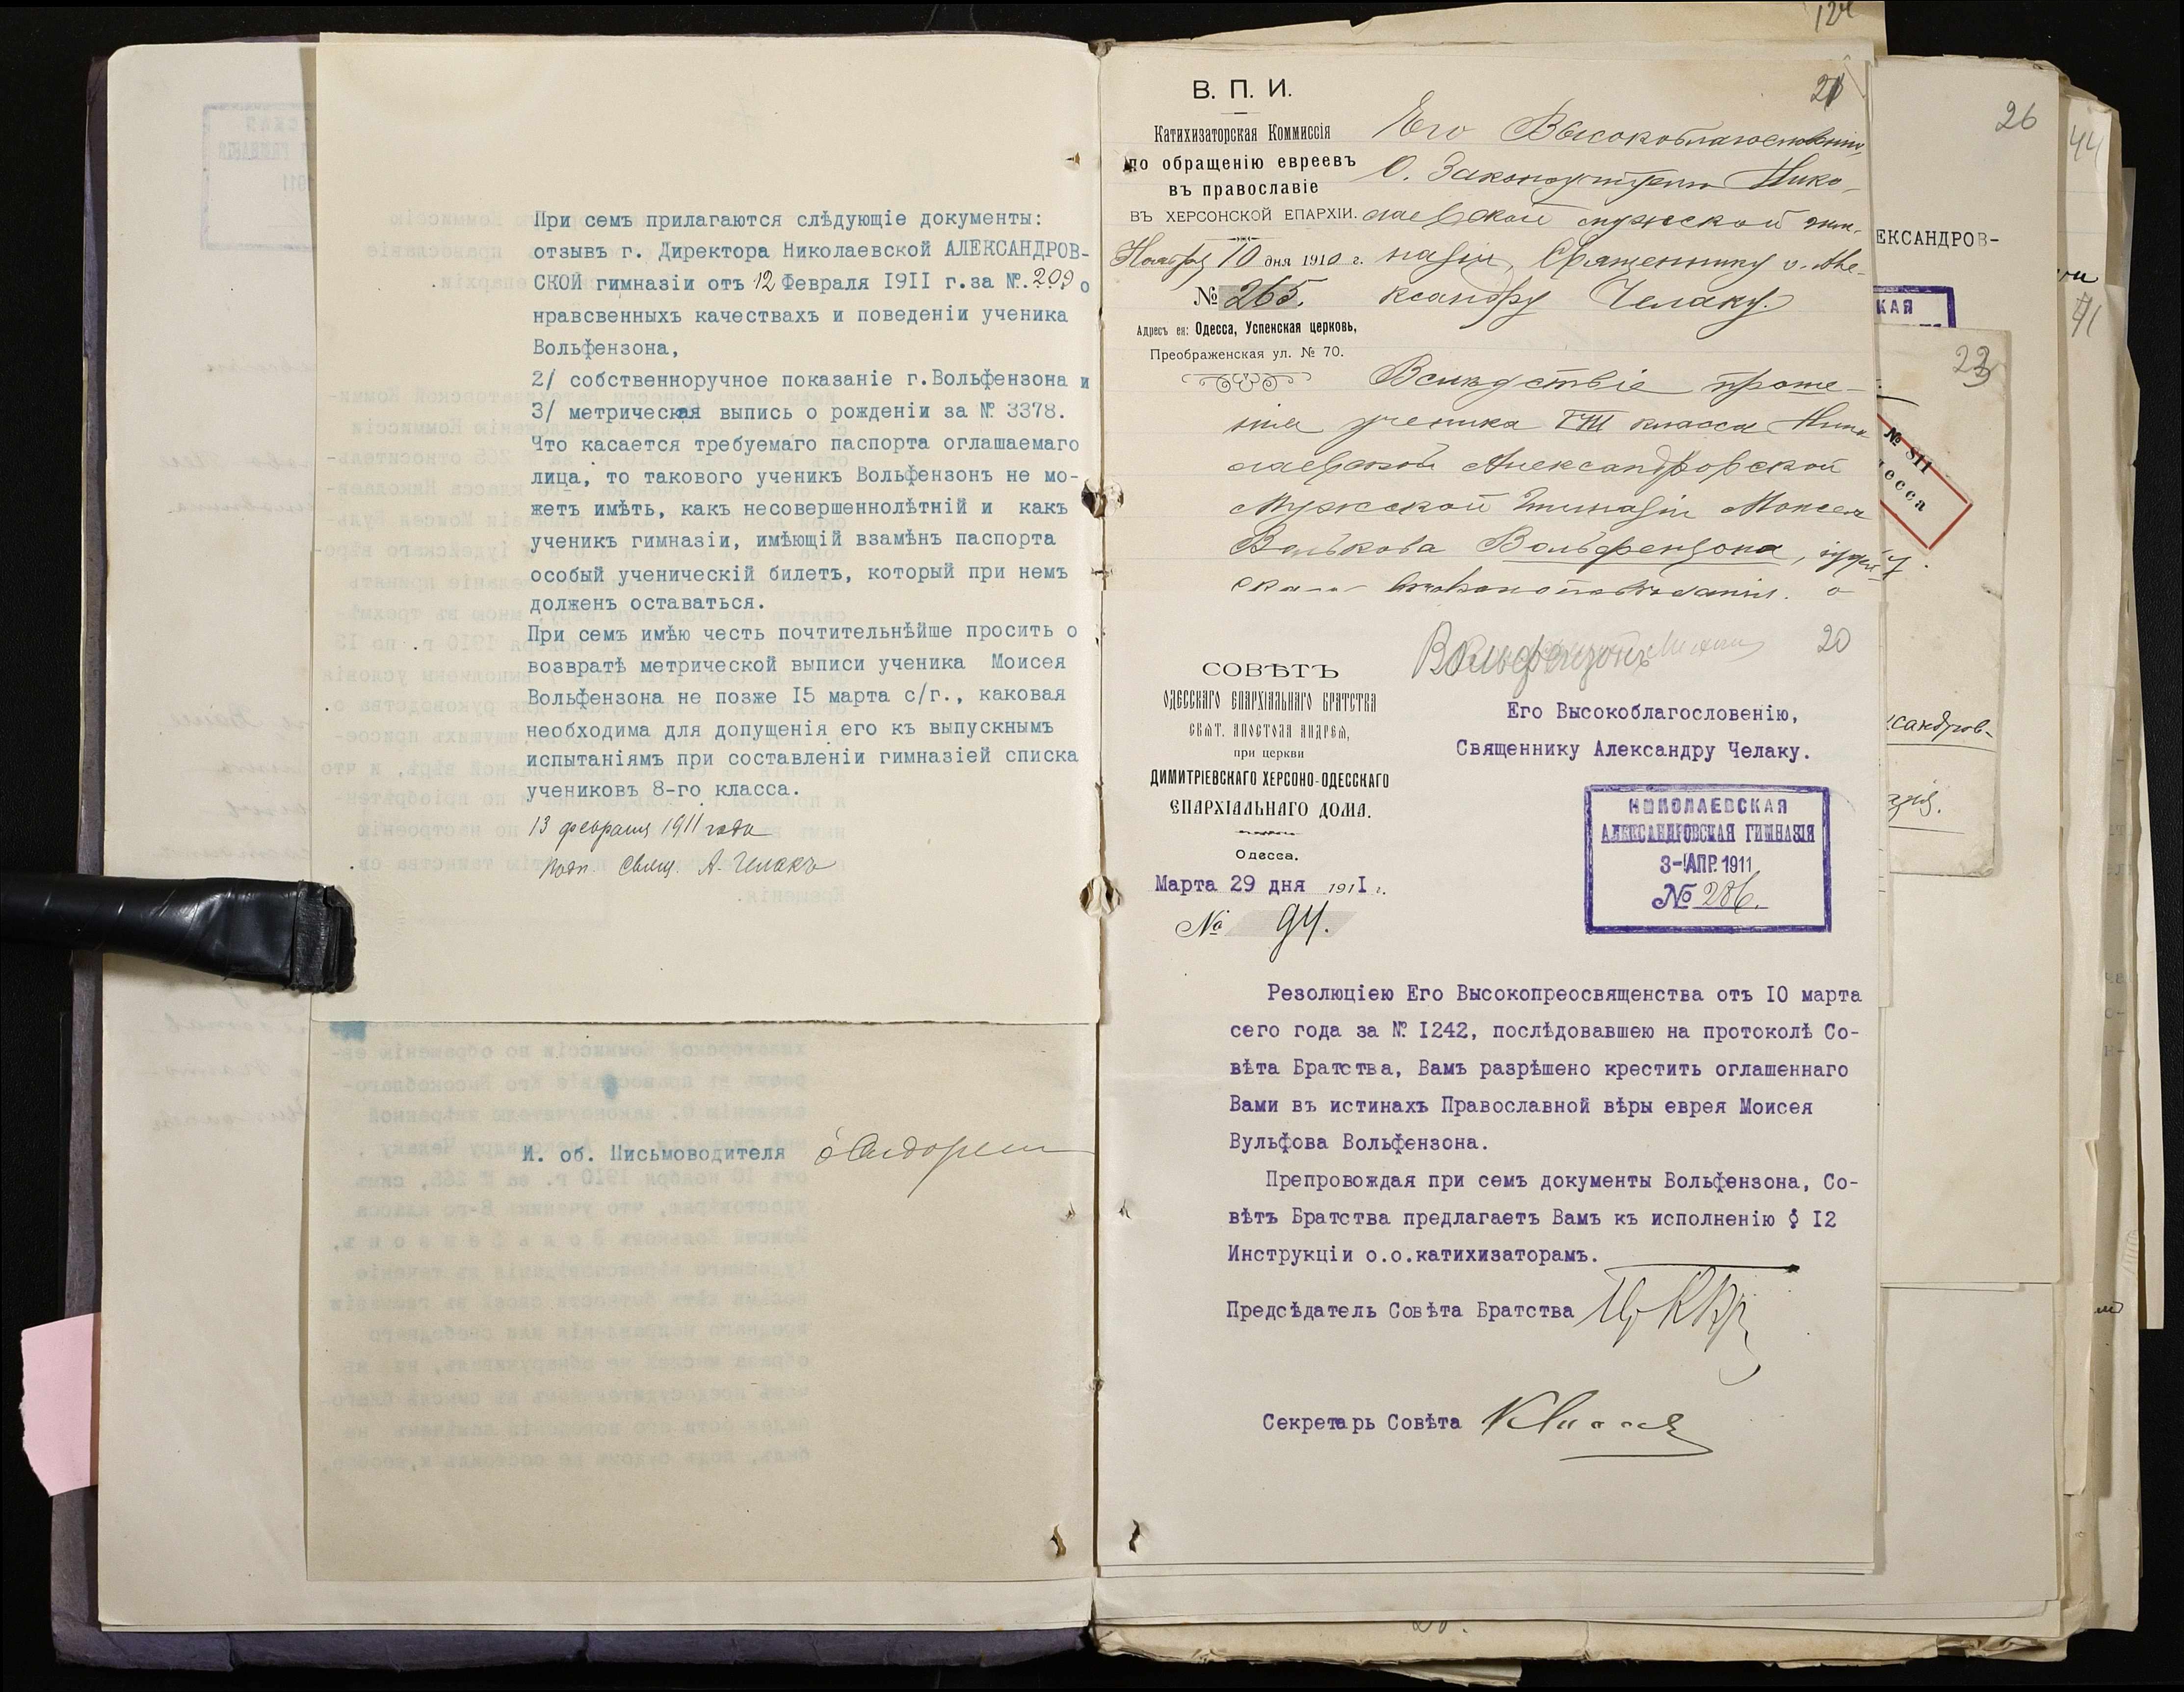 При семъ прилагаются слѣдующіе документы:
отзывъ г. Директора Николаевской АЛЕКСАНДРОВ-
СКОЙ гимназіи отъ 12 Февраля I9II г. за №. 209 о
нравсвенныхъ качествахъ и поведеніи ученика
Вольфензона,
2/ собственноручное показаніе г. Вольфензона и
3/ метрическая выпись о рожденіи за № 3378.
Что касается требуемаго паспорта оглашаемаго
лица, то такового ученикъ Вольфензонъ не мо-
жетъ имѣть, какъ несовершеннолѣтній и какъ
ученикъ гимназіи, имѣющій взамѣнъ паспорта
особый ученическій билетъ, который при немъ
долженъ оставаться.
При семъ имѣю честь почтительнѣйше просить о
возвратѣ метрической выписи ученика Моисея
Вольфензона не позже I5 марта с/г., каковая
необходима для допущенія его къ выпускнымъ
испытаніямъ при составленіи гимназіей списка
учениковъ 8-го класса.
13 февраля 1911 года
Подп. Свящ. А. Челакъ
И. об. Письмоводителя
124
В. П. И.
21
Катихизаторская Коммиссія
по обращенію евреевъ
въ православіе
ВЪ ХЕРСОНСКОЙ ЕПАРХІИ.
Ноября 10 дня 1910 г.
№ 265.
Адресъ ея: Одесса, Успенская церковь,
Преображенская ул. № 70.
Его Высокоблагословенію,
О. Законоучителю Нико-
лаевской мужской гим-
назіи, Священнику о. Але-
ксандру Челаку.
Вслѣдствіе проше-
нія ученика VIII класса Нико
лаевской Александровской
Мужской Гимназіи Моисея
Волькова Вольфензона, іудей
скаго вѣроисповѣданія. о
Вольфензонъ
20
СОВѢТЪ
ОДЕССКАГО ЕПАРХІАЛЬНАГО БРАТСТВА
СВѦТ. АПОСТОЛА АНДРЕѦ,
при церкви
ДИМИТРІЕВСКАГО ХЕРСОНО-ОДЕССКАГО
ЕПАРХІАЛЬНАГО ДОМА.
Одесса.
Марта 29 дня 191I г.
№ 94.
Его Высокоблагословенію,
Священнику Александру Челаку.
НИКОЛАЕВСКАЯ
АЛЕКСАНДРОВСКАЯ ГИМНАЗІЯ
3-АПР. 1911
№ 286.
Резолюціею Его Высокопреосвященства отъ I0 марта
сего года за № I242, послѣдовавшею на протоколѣ Со-
вѣта Братства, Вамъ разрѣшено крестить оглашеннаго
Вами въ истинахъ Православной вѣры еврея Моисея
Вульфова Вольфензона.
Препровождая при семъ документы Вольфензона, Со-
вѣтъ Братства предлагаетъ Вамъ къ исполненію § I2
Инструкціи о.о.катихизаторамъ.
Предсѣдатель Совѣта Братства
Секретарь Совѣта
26
ЕКСАНДРОВ-
КАЯ
23
№ 811
десса
ксандров-
44
41